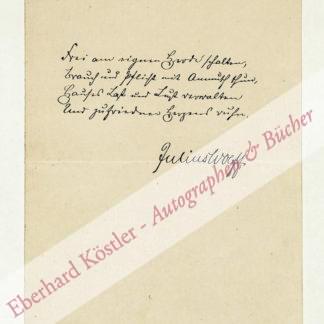 Frei am eignen Herde schalten,
Brauch und Pflicht mit Anmuth thun,
Hauses Last und Lust verwalten
Und zufriednen Herzens ruhn.
Julius Wolff.
Eberhard Köstler - Autographen & Bücher